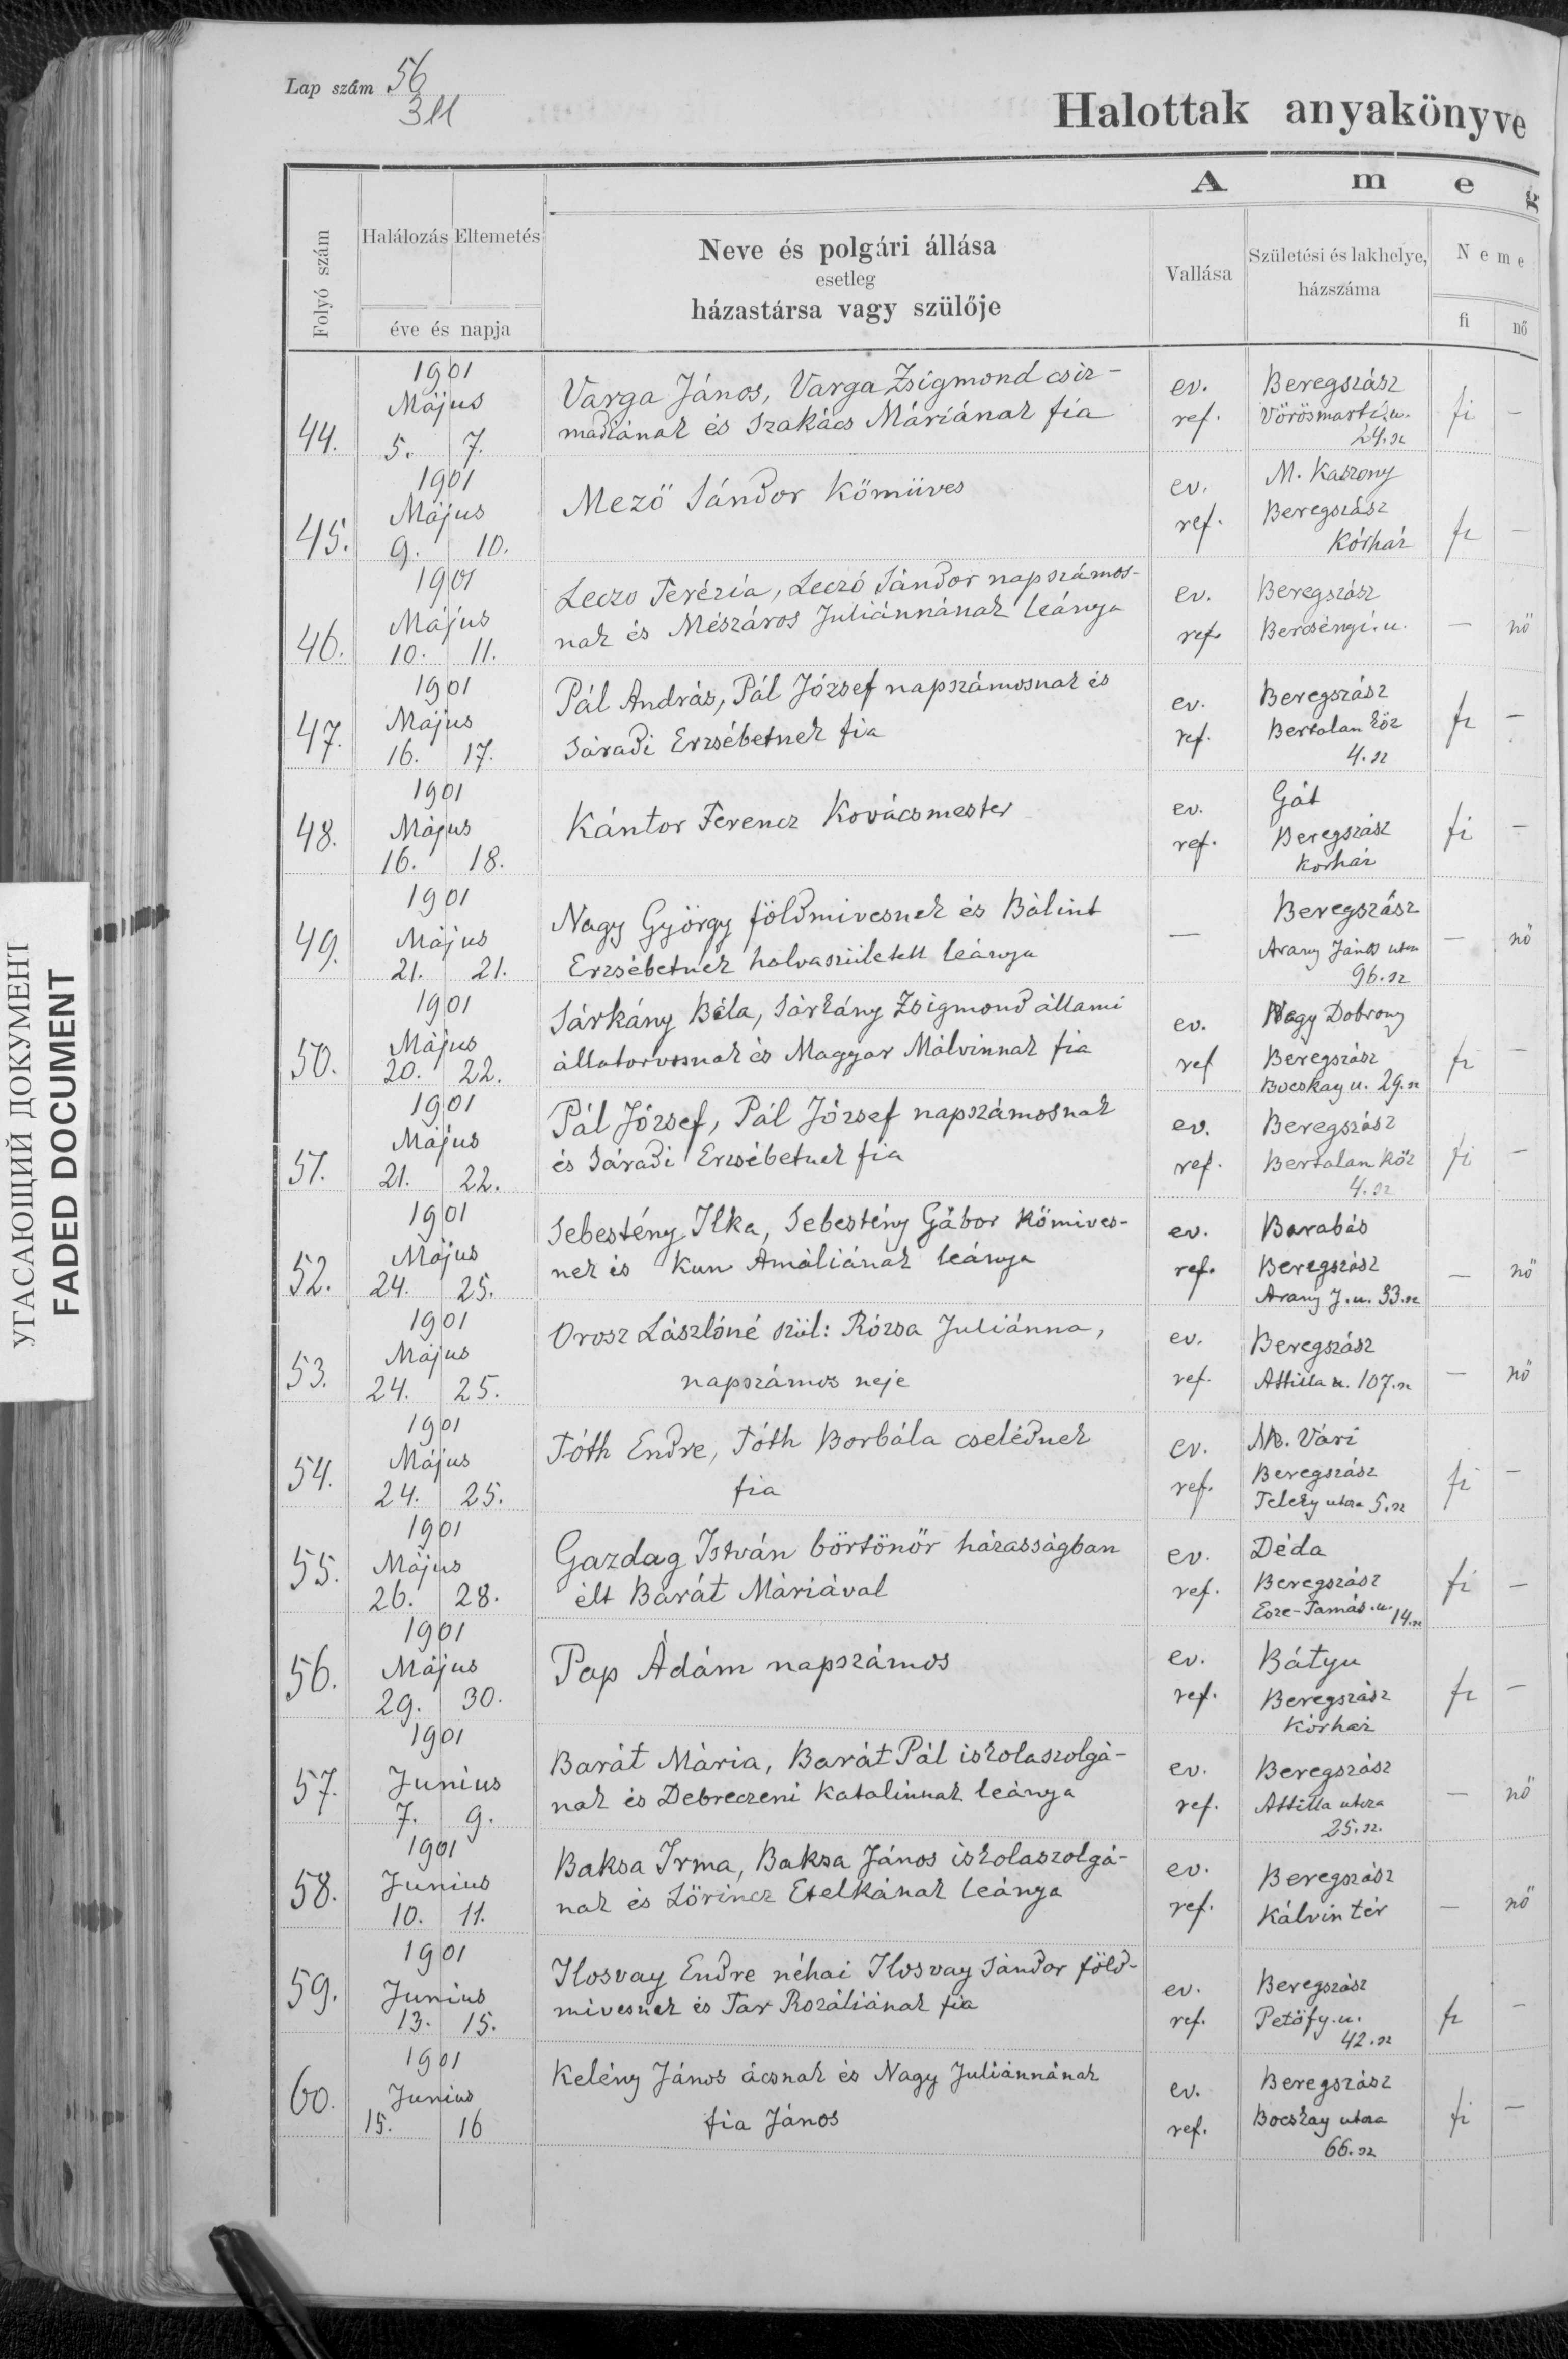 Lap szám 56
311
Halottak anyakönyve
A m e g
Folyó szám
Halálozás Eltemetés
éve és napja
Neve és polgári állása
esetleg
házastársa vagy szülője
Vallása
Születési és lakhelye,
házszáma
Neme
fi nő
УГАСАЮЩИЙ ДОКУМЕНТ
FADED DOCUMENT
1901
Május
44. 5. 7.
Varga János, Varga Zsigmond csiz-
madiának és Szakács Máriának fia
ev.
ref.
Beregszász
Vörösmarti.u.
24.sz
fi —
1901
Május
45. 9. 10.
Mező Sándor Kőmüves
ev.
ref.
M. Kaszony
Beregszász
Kórház
fi —
1901
Május
46. 10. 11.
Leczo Terézia, Leczó Sándor napszámos-
nak és Mészáros Juliánnának leánya
ev.
ref.
Beregszász
Bercsényi.u.
— nő
1901
Május
47. 16. 17.
Pál András, Pál József napszámosnak és
Sáradi Erzsébetnek fia
ev.
ref.
Beregszász
Bertalan köz
4.sz
fi —
1901
Május
48. 16. 18.
Kántor Ferencz Kovácsmester
ev.
ref.
Gát
Beregszász
Korház
fi —
1901
Május
49. 21. 21.
Nagy György földmivesnek és Bálint
Erzsébetnek halvaszületett leánya
—
Beregszász
Arany János utca
96.sz
— nő
1901
Május
50. 20. 22.
Sárkány Béla, Sárkány Zsigmond állami
állatorvosnak és Magyar Málvinnak fia
ev.
ref
Nagy Dobrony
Beregszász
Bocskay u. 29.sz
fi —
1901
Május
51. 21. 22.
Pál József, Pál József napszámosnak
és Sáradi Erzsébetnek fia
ev.
ref.
Beregszász
Bertalan köz
4.sz
fi —
1901
Május
52. 24. 25.
Sebestény Ilka, Sebestény Gábor kőmives-
nek és Kun Amáliának leánya
ev.
ref.
Barabás
Beregszász
Arany J.u. 33.sz
— nő
1901
Május
53. 24. 25.
Orosz Lászlóné szül: Rózsa Juliánna,
napszámos neje
ev.
ref.
Beregszász
Attilla u. 107.sz
— nő
1901
Május
54. 24. 25.
Tóth Endre, Tóth Borbála cselédnek
fia
ev.
ref.
Vári
Beregszász
Teleky utca 5.sz
fi —
1901
Május
55. 26. 28.
Gazdag István börtönőr házasságban
élt Barát Máriával
ev.
ref.
Déda
Beregszász
Esze-Tamás.u. 14.sz
fi —
1901
Május
56. 29. 30.
Pap Ádám napszámos
ev.
ref.
Bátyu
Beregszász
Kórház
fi —
1901
Junius
57. 7. 9.
Barát Mária, Barát Pál iskolaszolgá-
nak és Debreczeni Katalinnak leánya
ev.
ref.
Beregszász
Attilla utcza
25.sz.
— nő
1901
Junius
58. 10. 11.
Baksa Irma, Baksa János iskolaszolgá-
nak és Lőrincz Etelkának leánya
ev.
ref.
Beregszász
Kálvin tér
— nő
1901
Junius
59. 13. 15.
Ilosvay Endre néhai Ilosvay Sándor föld-
mivesnek és Tar Rozáliának fia
ev.
ref.
Beregszász
Petőfy.u.
42.sz
fi —
1901
Junius
60. 15. 16
Kelény János ácsnak és Nagy Juliánnának
fia János
ev.
ref.
Beregszász
Bocskay utca
66.sz
fi —